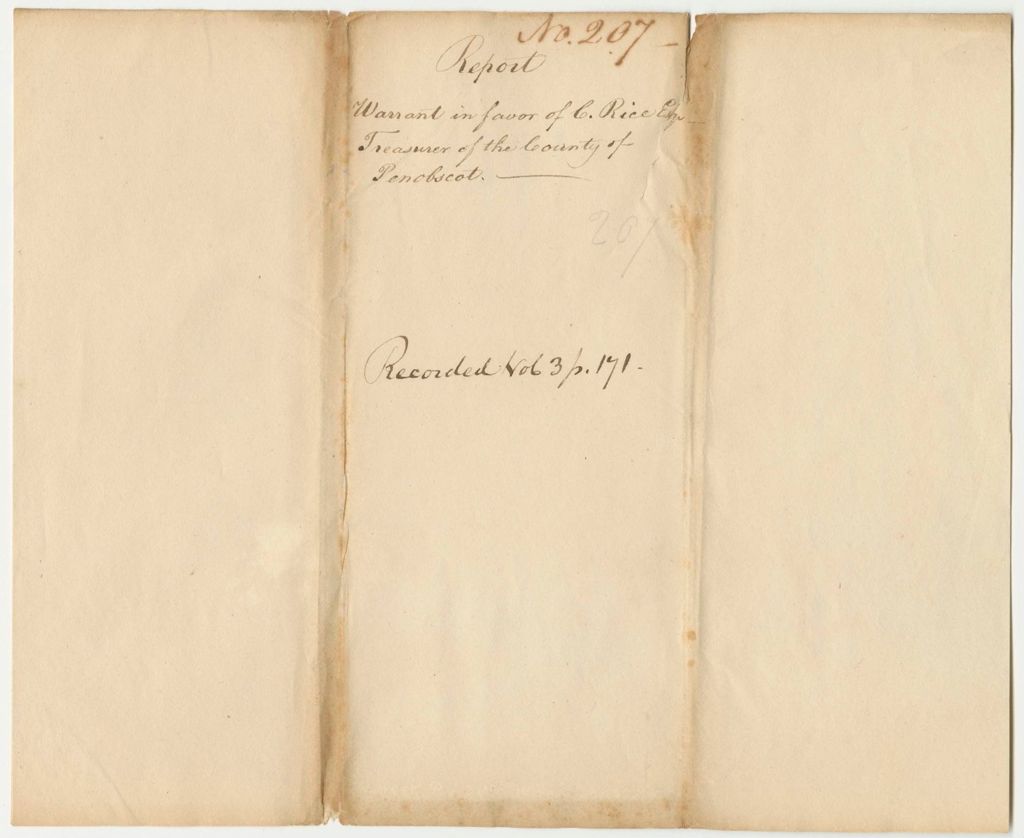 No. 207 -
Report
Warrant in favor of C. Rice Esqr
Treasurer of the County of
Penobscot.
207
Recorded Vol 3 p. 171 -